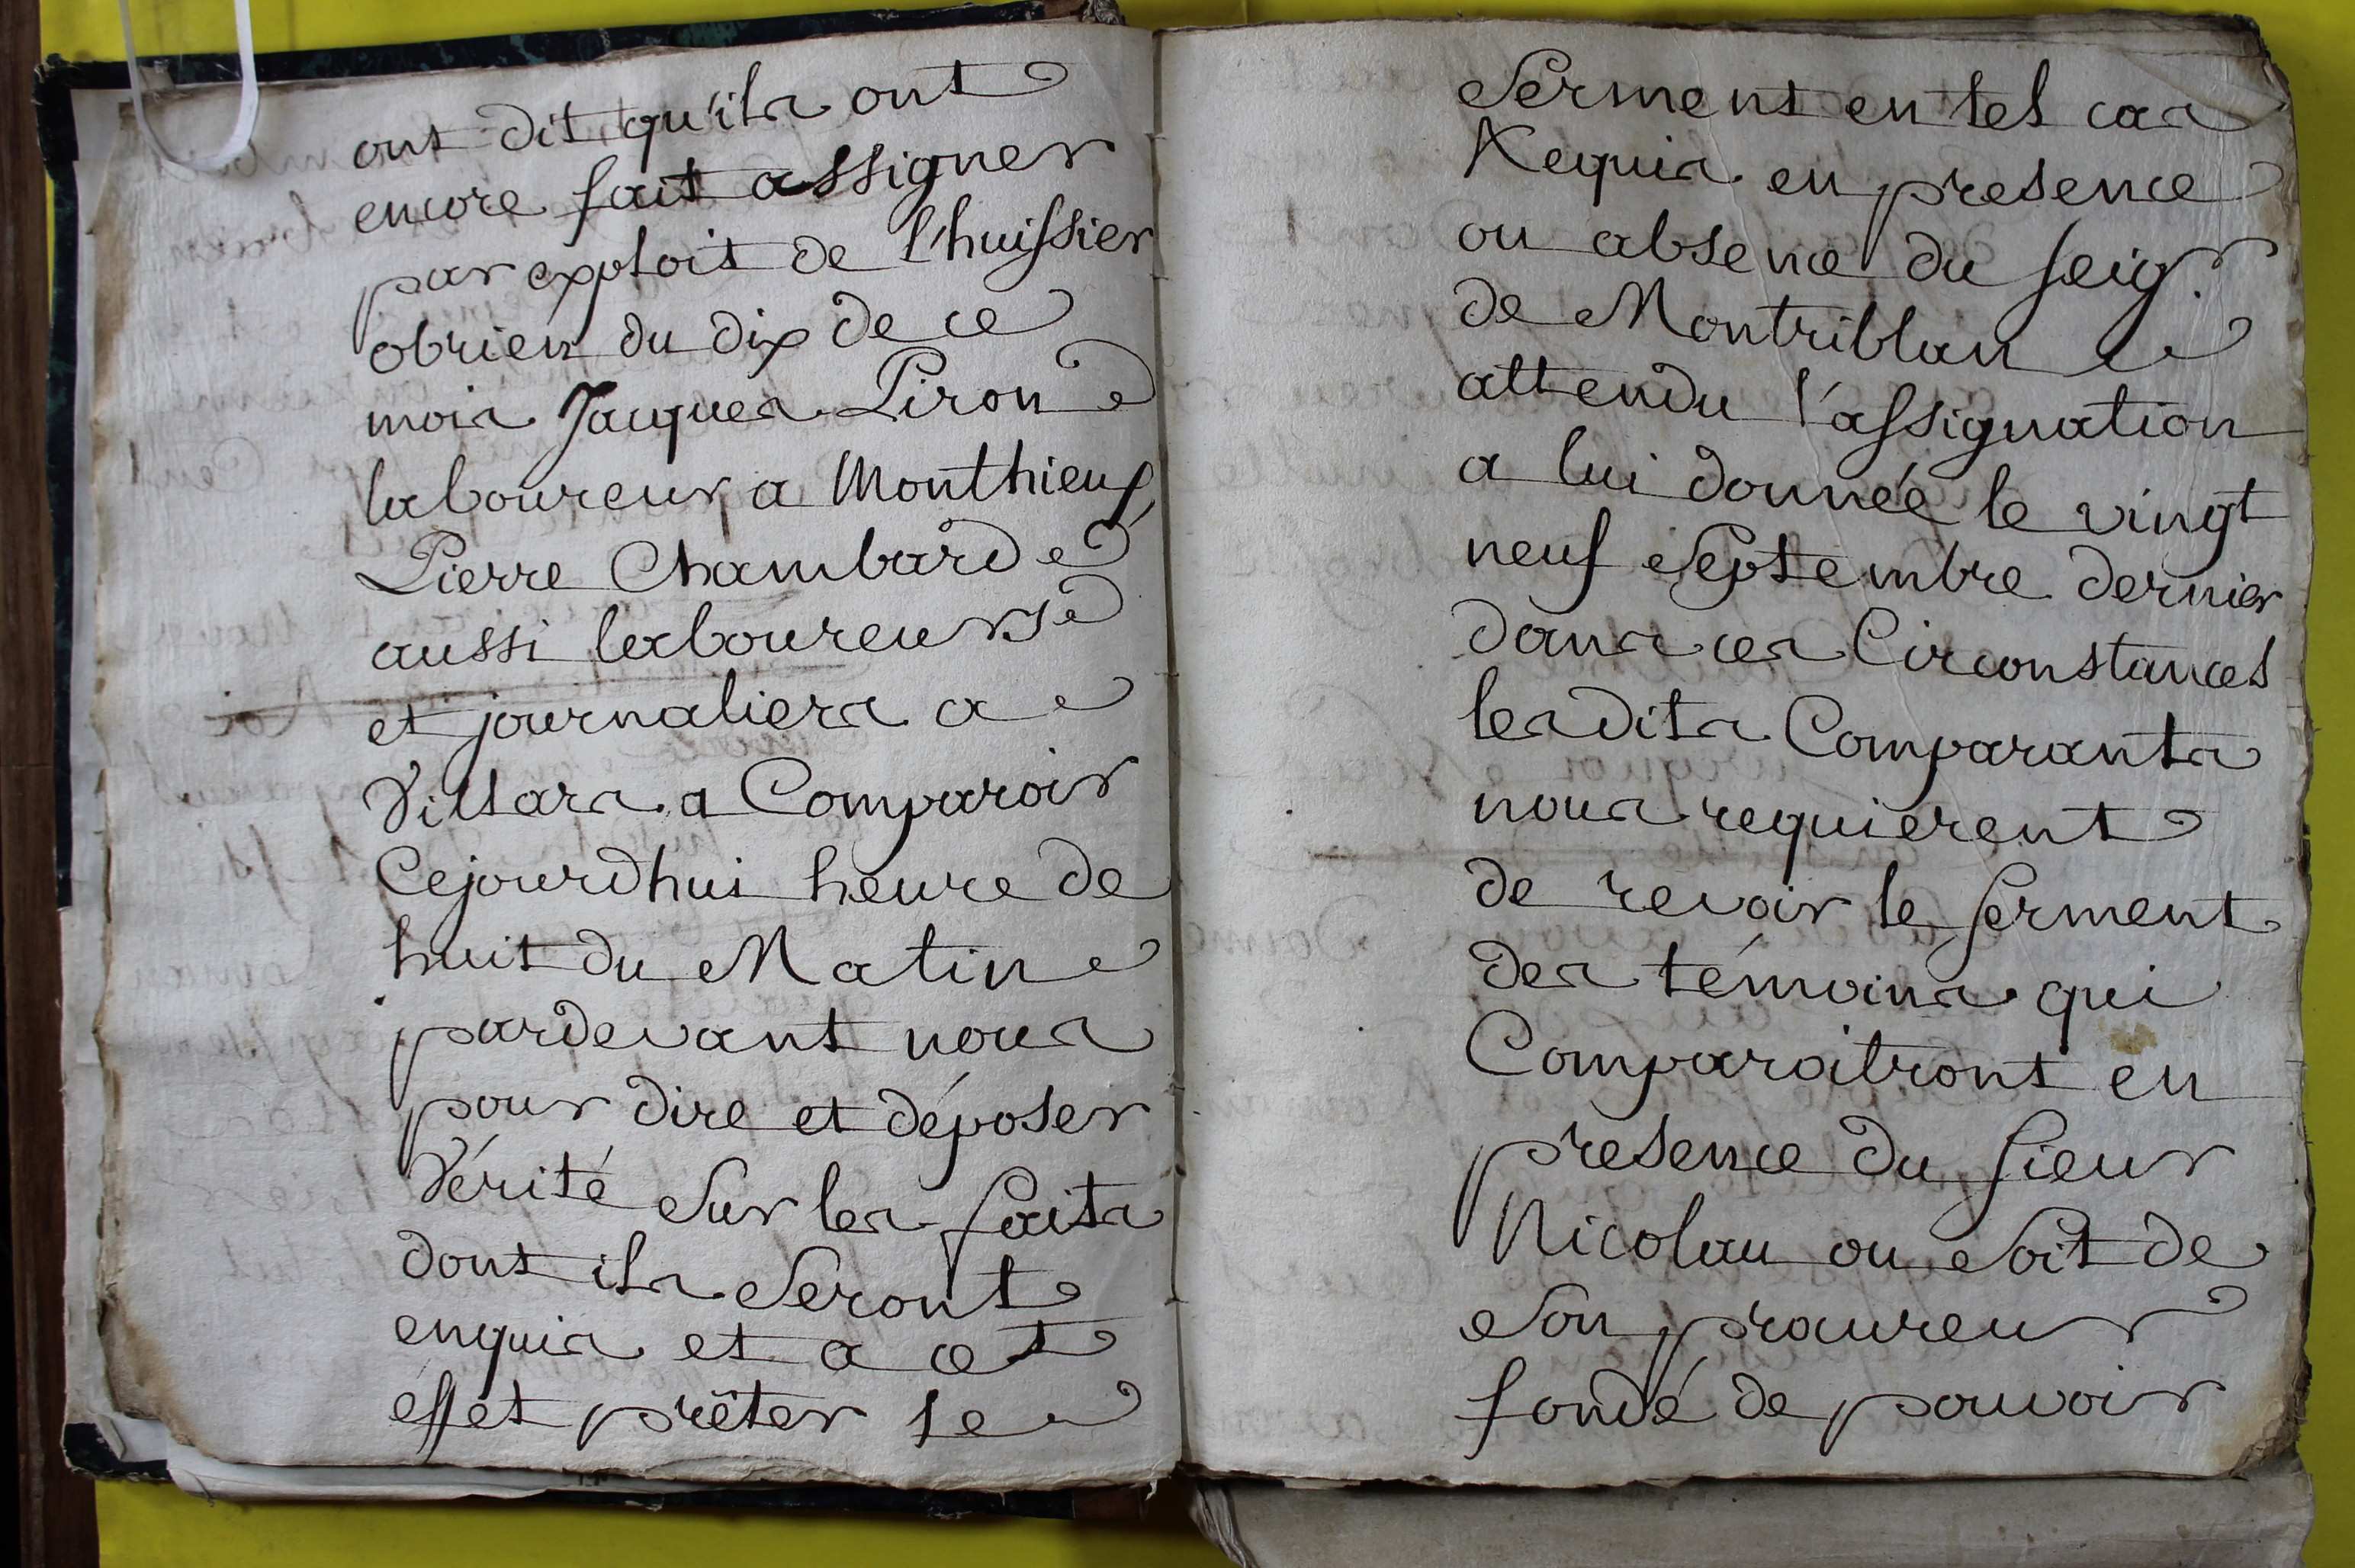 ont dit qu'ils ont
encore fait assigner
par exploit de l'huissier
obrien du dix de ce
mois Jacques Piron
laboureur a Monthieux,
Pierre Chambard
aussi laboureurs
et journaliers a
Villars a Comparoir
Cejourdhui heure de
huit du Matin
pardevant nous
pour dire et déposer
Vérité Sur les faits
dont ils Seront
enquis et a cet
effet prêter le
Serment en tel cas
Requis en presence
ou absence du seigr.
de Montriblan
attendu l'assignation
a lui donnée le vingt
neuf Septembre dernier
dans ces Circonstances
lesdits Comparants
nous requierent
de revoir le serment
des témoins qui
Comparaitront en
presence du sieur
Nicolau ou Soit de
Son procureur
fondé de pouvoir